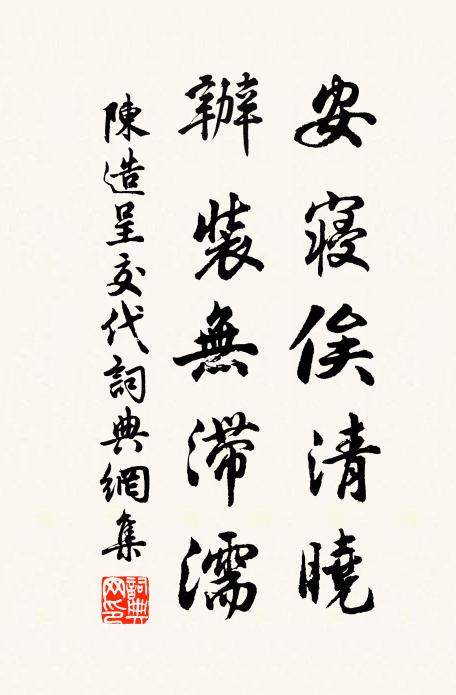 安寝俟清曉
辦裝無滯濡
陳造呈交代詞典網集
詞典網印